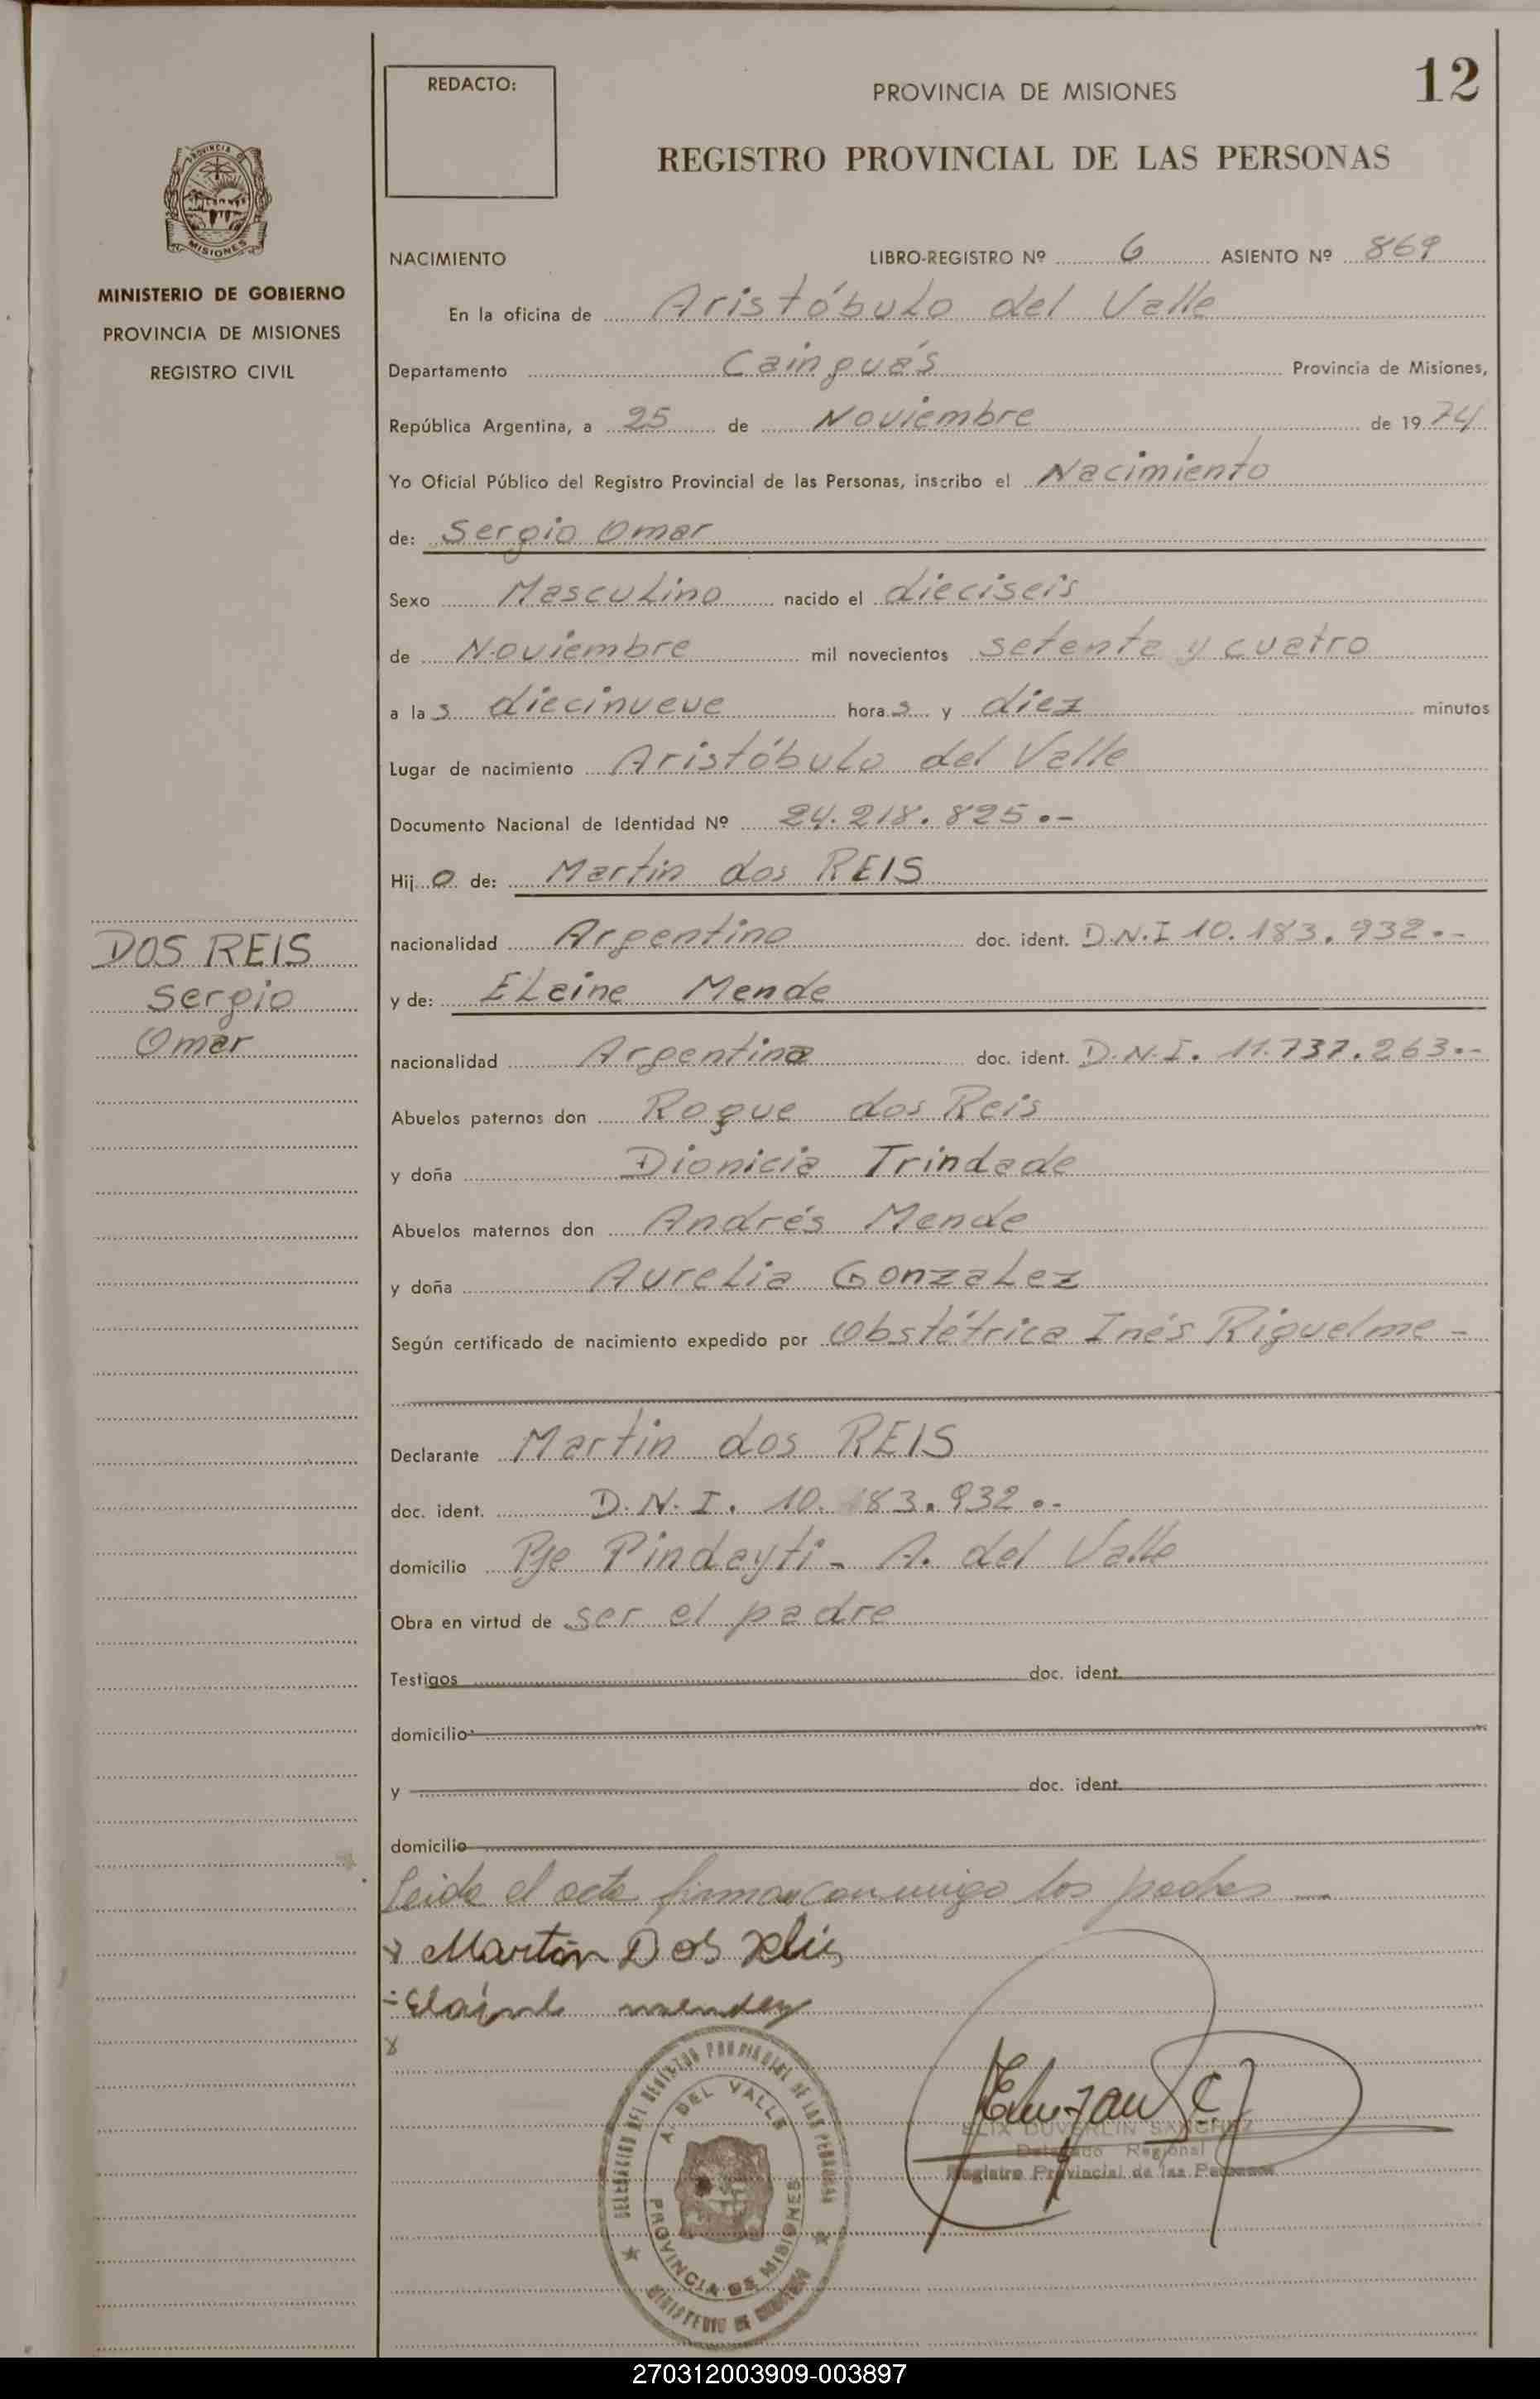 12
REDACTO:
PROVINCIA DE MISIONES
REGISTRO PROVINCIAL DE LAS PERSONAS
PROVINCIA DE
MISIONES
MINISTERIO DE GOBIERNO
PROVINCIA DE MISIONES
REGISTRO CIVIL
NACIMIENTO LIBRO-REGISTRO Nº 6 ASIENTO Nº 869
En la oficina de Aristóbulo del Valle
Departamento Cainguás Provincia de Misiones,
República Argentina, a 25 de Noviembre de 1974
Yo Oficial Público del Registro Provincial de las Personas, inscribo el Nacimiento
de: Sergio Omar
Sexo Masculino nacido el dieciseis
de Noviembre mil novecientos setenta y cuatro
a las diecinueve horas y diez minutos
Lugar de nacimiento Aristóbulo del Valle
Documento Nacional de Identidad Nº 24.218.825.-
Hijo de: Martin dos REIS
nacionalidad Argentino doc. ident. D.N.I 10.183.932.-
y de: Elaine Mende
nacionalidad Argentina doc. ident. D.N.I. 11.737.263.-
Abuelos paternos don Roque dos Reis
y doña Dionicia Trindade
Abuelos maternos don Andrés Mende
y doña Aurelia Gonzalez
Según certificado de nacimiento expedido por Obstétrica Inés Riquelme -
Declarante Martin dos REIS
doc. ident. D.N.I. 10.183.932.-
domicilio Pje Pindayti - A. del Valle
Obra en virtud de ser el padre
Testigos doc. ident.
domicilio
y doc. ident.
domicilio
Leida el acta firman conmigo los padres
Martin Dos Reis
Elaine mendez
DOS REIS
Sergio
Omar
DELEGACION DEL REGISTRO PROVINCIAL DE LAS PERSONAS
A. DEL VALLE
PROVINCIA DE MISIONES
MINISTERIO DE GOBIERNO
ELIX DUVERLIN SANCHEZ
Delegado Regional
Registro Provincial de las Personas
270312003909-003897